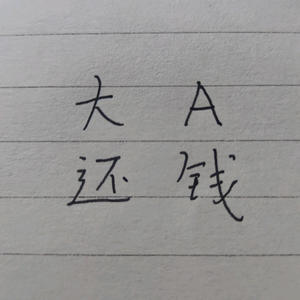 大 A
还 钱